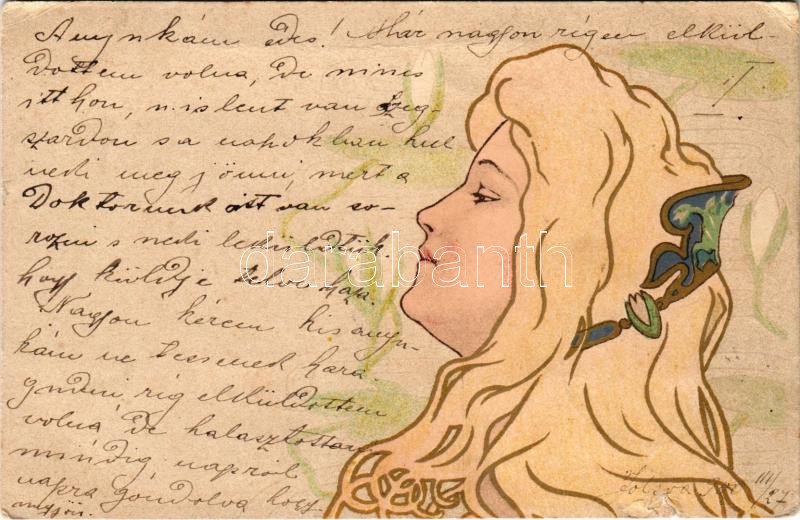 Anynkám Édes! Már nagyon rígen elkül-
dottem volna, De nines
itthon, n.is lent van Szeg-
szardon s a napokban kel
neki meg jönni, mert a
Doktorunk ott van so-
rozni s neki leküldtük
hogy küldje haza.
Nagyon kérem kis anyu-
kám ne tessenek hara-
gudni, rig elküldottem
volna, De halasztottam
mindig napról
napra gondolva hogy
II.
darabanth
III/27